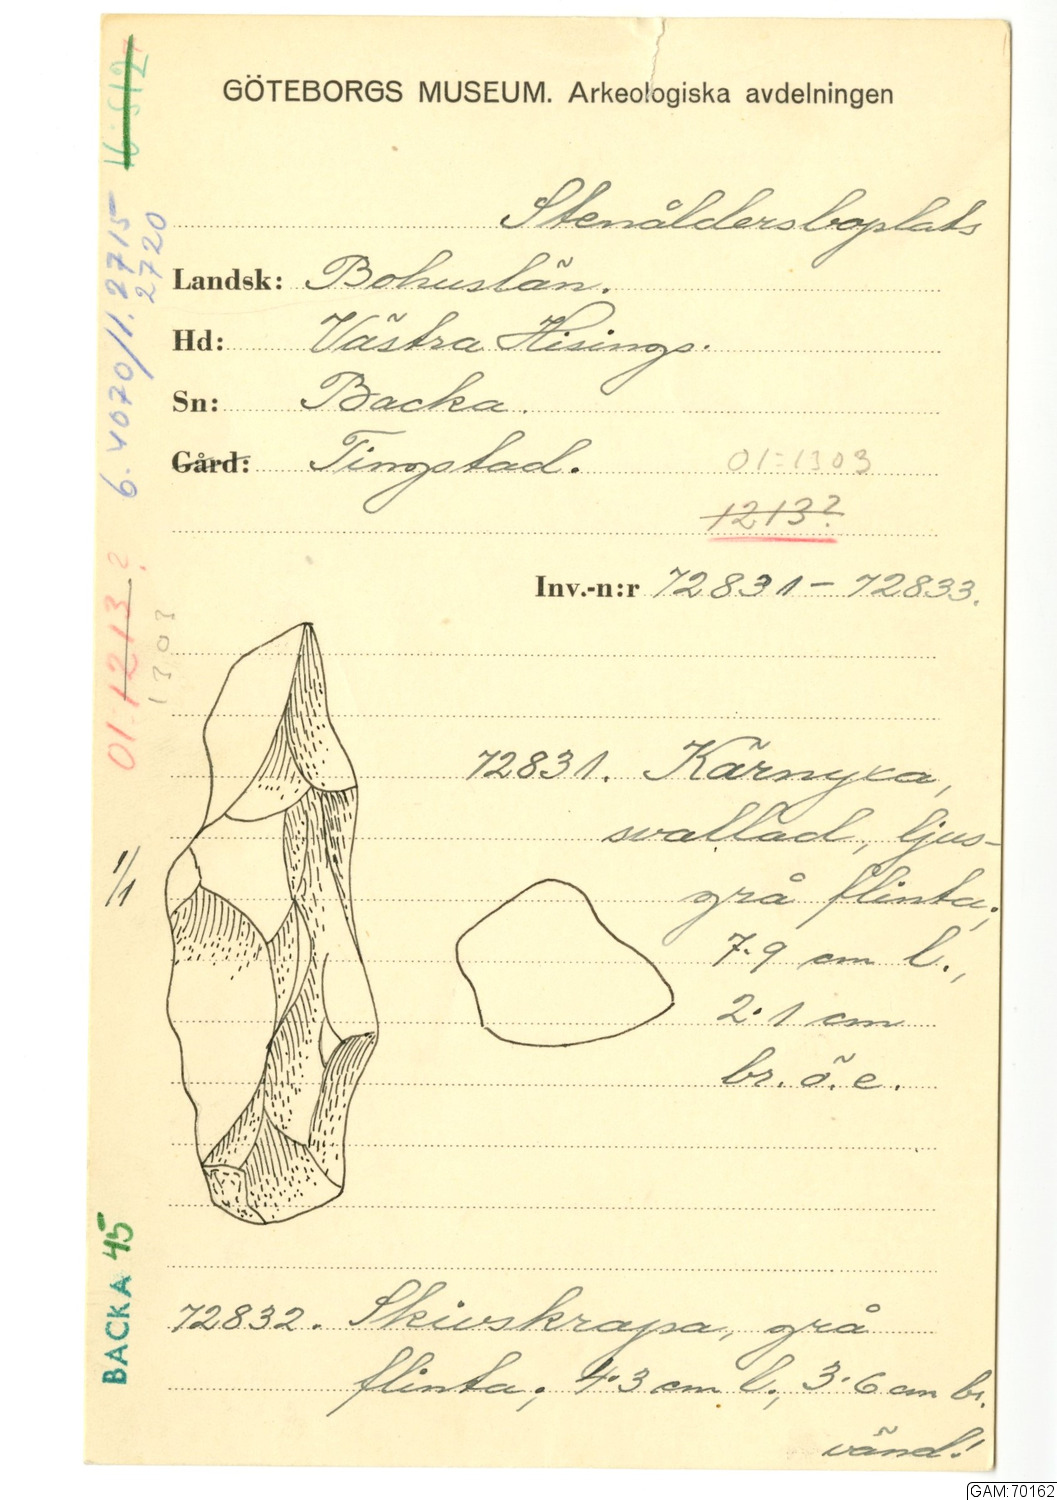 GÖTEBORGS MUSEUM. Arkeologiska avdelningen
Stenåldersboplats
Landsk: Bohuslän.
Hd: Västra Hisings.
Sn: Backa.
Gård: Tingstad. 01:1303
1213?
Inv.-n:r 72831 – 72833.
72831. Kärnyxa,
svallad, ljus-
grå flinta;
7.9 cm l.,
2.1 cm
br. ö. e.
1/1
72832. Skivskrapa, grå
flinta; 4.3 cm l., 3.6 cm br.
vänd!
16:512
6.4070/11.2715
2720
01:1213?
1303
BACKA 45
GAM:70162